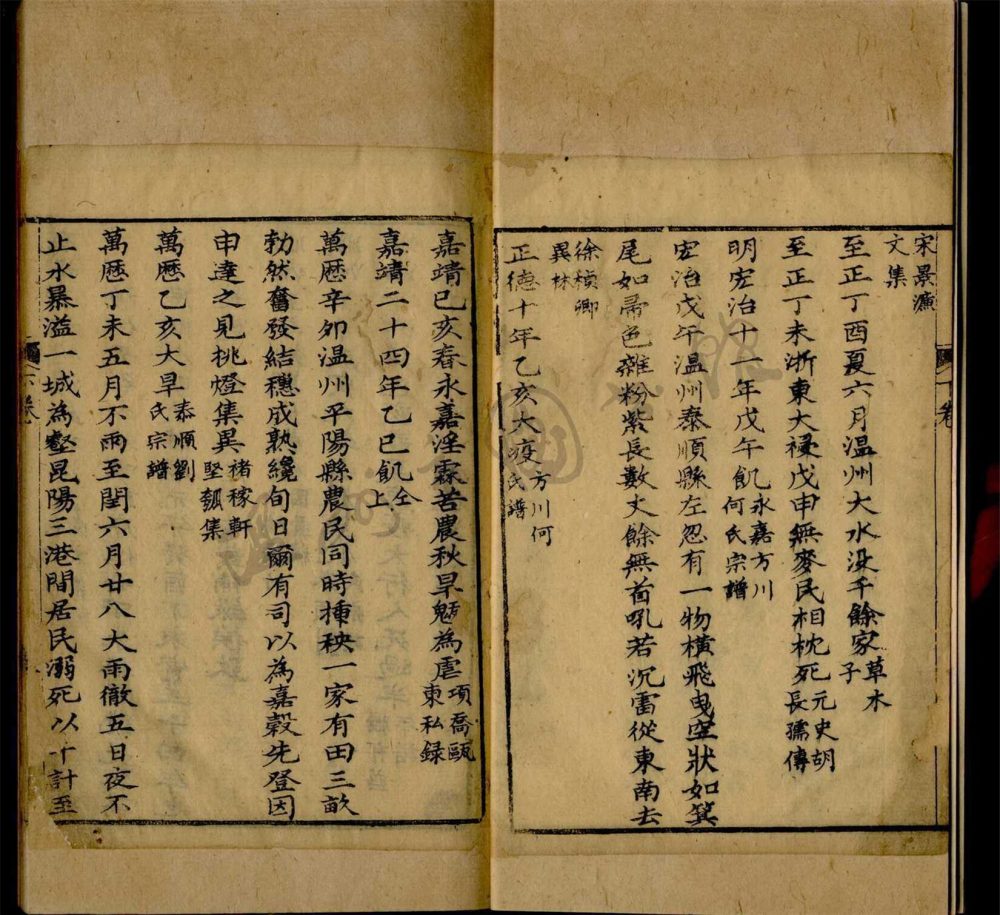 宋景濂
文集
至正丁酉夏六月温州大水没千餘家草木
子
至正丁未浙東大祲戊申無麥民相枕死元史胡
長孺傳
明宏治十一年戊午飢永嘉方川
何氏宗譜
宏治戊午温州泰順縣左忽有一物橫飛曳空狀如箕
尾如帚色雜粉紫長數丈餘無首吼若沉雷從東南去
徐禎卿
異林
正德十年乙亥大疫方川何
氏譜
嘉靖己亥春永嘉淫霖苦農秋旱魃為虐項喬甌
東私録
嘉靖二十四年乙巳飢仝
上
萬厯辛卯温州平陽縣農民同時揷秧一家有田三畝
勃然奮發結穗成熟纔旬日爾有司以為嘉穀先登因
申達之見桃燈集異禇稼軒
堅瓠集
萬厯乙亥大旱泰順劉
氏宗譜
萬厯丁未五月不雨至閏六月廿八大雨徹五日夜不
止水暴溢一城為壑昆陽三港間居民溺死以千計至